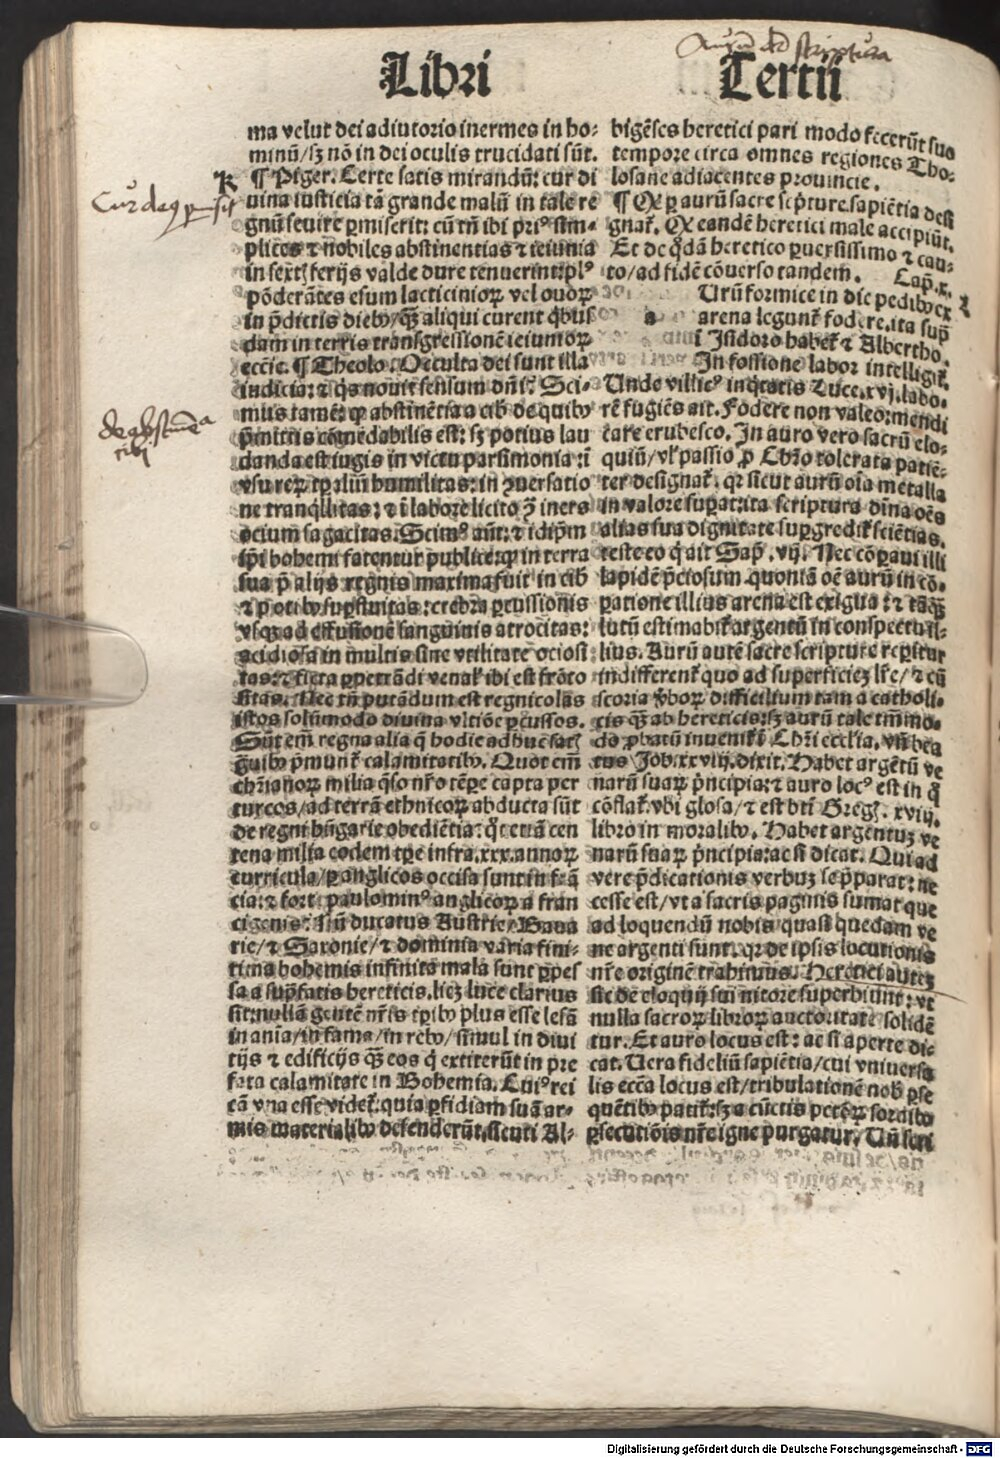 Libri
Tertii
ma velut dei adiutorio inermes in ho-
minū/sz nō in dei oculis trucidati sūt.
¶ Piger. Certe satis mirandū: cur di
uina iusticia tā grande malū in tale re
gnū seuire ꝑmiserit: cū tn̄ ibi priꝰ sim-
plices ⁊ nobiles abstinentias ⁊ ieiunia
in sext ferijs valde dure tenuerint: plꝰ
pōderātes esum lacticinioꝝ vel ouoꝝ
in p̄dictis diebꝰ/ꝙ̄ aliqui curent qͥbus
dam in terris transgressionē ieiunioꝝ
eccl̄ie. ¶ Theolo. Occulta dei sunt illa
iudicia: ⁊ qͥs nouit sensum dn̄i? Sci-
mus tamē: ꝙ abstinētia a cib de quibꝰ
p̄mittis cōmēdabilis est: sz potius lau
danda est iugis in victu parsimonia: ī
vsu reꝝ tꝑaliū humilitas: in ꝯuersatio
ne tranqͥllitas: ⁊ ī labore licito ꝯ̄ iners
ocium sagacitas. Scimꝰ aūt: ⁊ idip̄m
ip̄i bohemi fatentur publice: ꝙ in terra
sua p̄ alijs regnis maxima fuit in cib
⁊ potibꝰ suꝑfluitas: crebra ꝑcussionis
vsqꝫ ad effusionē sanguinis atrocitas:
acidiosa in multis sine vtilitate ociosi
tas: ⁊ ficta ꝑpetrādi venal ibi est frōto
sitas. Nec tn̄ putādum est regnicolas
istos solūmodo diuina vltiōe ꝑcussos.
Sūt em̄ regna alia q̄ hodie adhuc sat
grauibꝰ p̄munt calamitatibꝰ. Quot em̄
christianoꝝ milia qͥso nr̄o tēꝑe capta per
turcos/ad terrā ethnicoꝝ abducta sūt
de regni hūgarie obediētia: qͥ etiā cen
tena milia eodem tꝑe infra.xxx.annoꝝ
curricula/ꝑ anglicos occisa sunt in frā
cia: ⁊ fort paulominꝰ anglicoꝝ a fran
cigenis? Nū ducatus Austrie/Baua
rie/⁊ Saxonie/⁊ dominia varia fini-
tima bohemis infinita mala sunt ꝑpes
sa a supͣfatis hereticis. licz luce clarius
sit: nullā gentē nr̄is tꝑibꝰ plus esse lesā
in anīa/in fama/in rebꝰ/simul in diui
tijs ⁊ edificijs ꝙ̄ eos qͥ extiterūt in pre
fata calamitate in Bohemia. Cuiꝰ rei
cā vna esse videt: quia ꝑfidiam suā ar-
mis materialibꝰ defenderūt, sicuti Al-
bigēses heretici pari modo fecerūt suo
tempore circa omnes regiones Tho-
losane adiacentes prouincie.
¶ Qꝫ ꝑ aurū sacre scp̄ture.sapiētia desi
gnat. Qꝫ eandē heretici male accipiūt.
Et de qͦdā heretico ꝑuersissimo ⁊ cau-
to/ad fidē cōuerso tandem. Cap̄.x.
Urū formice in die pedibꝰ ex
a arena legunt fodere.ita sup̄
i Isidoro habet ⁊ Albertho.
In fossione labor intelligit.
Unde villicꝰ iniqͥtatis Luce.xvj.labo-
rē fugiēs ait. Fodere non valeo: mendi
care erubesco. In auro vero sacrū elo-
quiū/vl passio ꝓ Chr̄o tolerata patiē-
ter designat. qꝛ sicut aurū oīa metalla
in valore suꝑat: ita scriptura diuīna oēs
alias sua dignitate suꝑgredit sciētias.
teste eo qͥ ait Sap̄. vij. Nec cōꝑaui illi
lapidē p̄ciosum. quoniā oē aurū in cō-
ꝑatione illius arena est exigua: ⁊ tāqꝫ
lutū estimabit argentū in conspectu il-
lius. Aurū autē sacre scripture reperitur
indifferent quo ad superficiez lr̄e/⁊ cū
scoria vboꝝ difficilium tam a catholi-
cis ꝙ̄ ab hereticis: sz aurū tale tm̄mo-
do ꝓbatū inuenit ī Chr̄i ecclesia. vn̄ bea
tus Job.xxviij.dixit. Habet argētū ve
narū suaꝝ p̄ncipia: ⁊ auro locꝰ est in qͦ
cōflat. vbi glosa/⁊ est bt̄i Greg. xviij.
libro in moralibꝰ. Habet argentuz ve
narū suaꝝ p̄ncipia: ac si dicat. Qui ad
vere p̄dicationis verbuz se p̄parat: ne
cesse est/vt a sacris paginis sumat que
ad loquendū nobis quasi quedam ve
ne argenti sunt. qꝛ de ipsis locutionis
nr̄e originē trahimus. Heretici autez
sic de eloquij sui nitore superbiunt: vt
nulla sacroꝝ libroꝝ auctoritate solidē
tur. Et auro locus est: ac si aperte di-
cat. Uera fideliū sapiētia/cui vniuersa
lis eccl̄a locus est/tribulationē nob ꝑse
quētibꝰ patit: sz a cūctis pctōꝝ sordibꝰ
ꝑsecutiōis nr̄e igne purgatur. Uñ scri